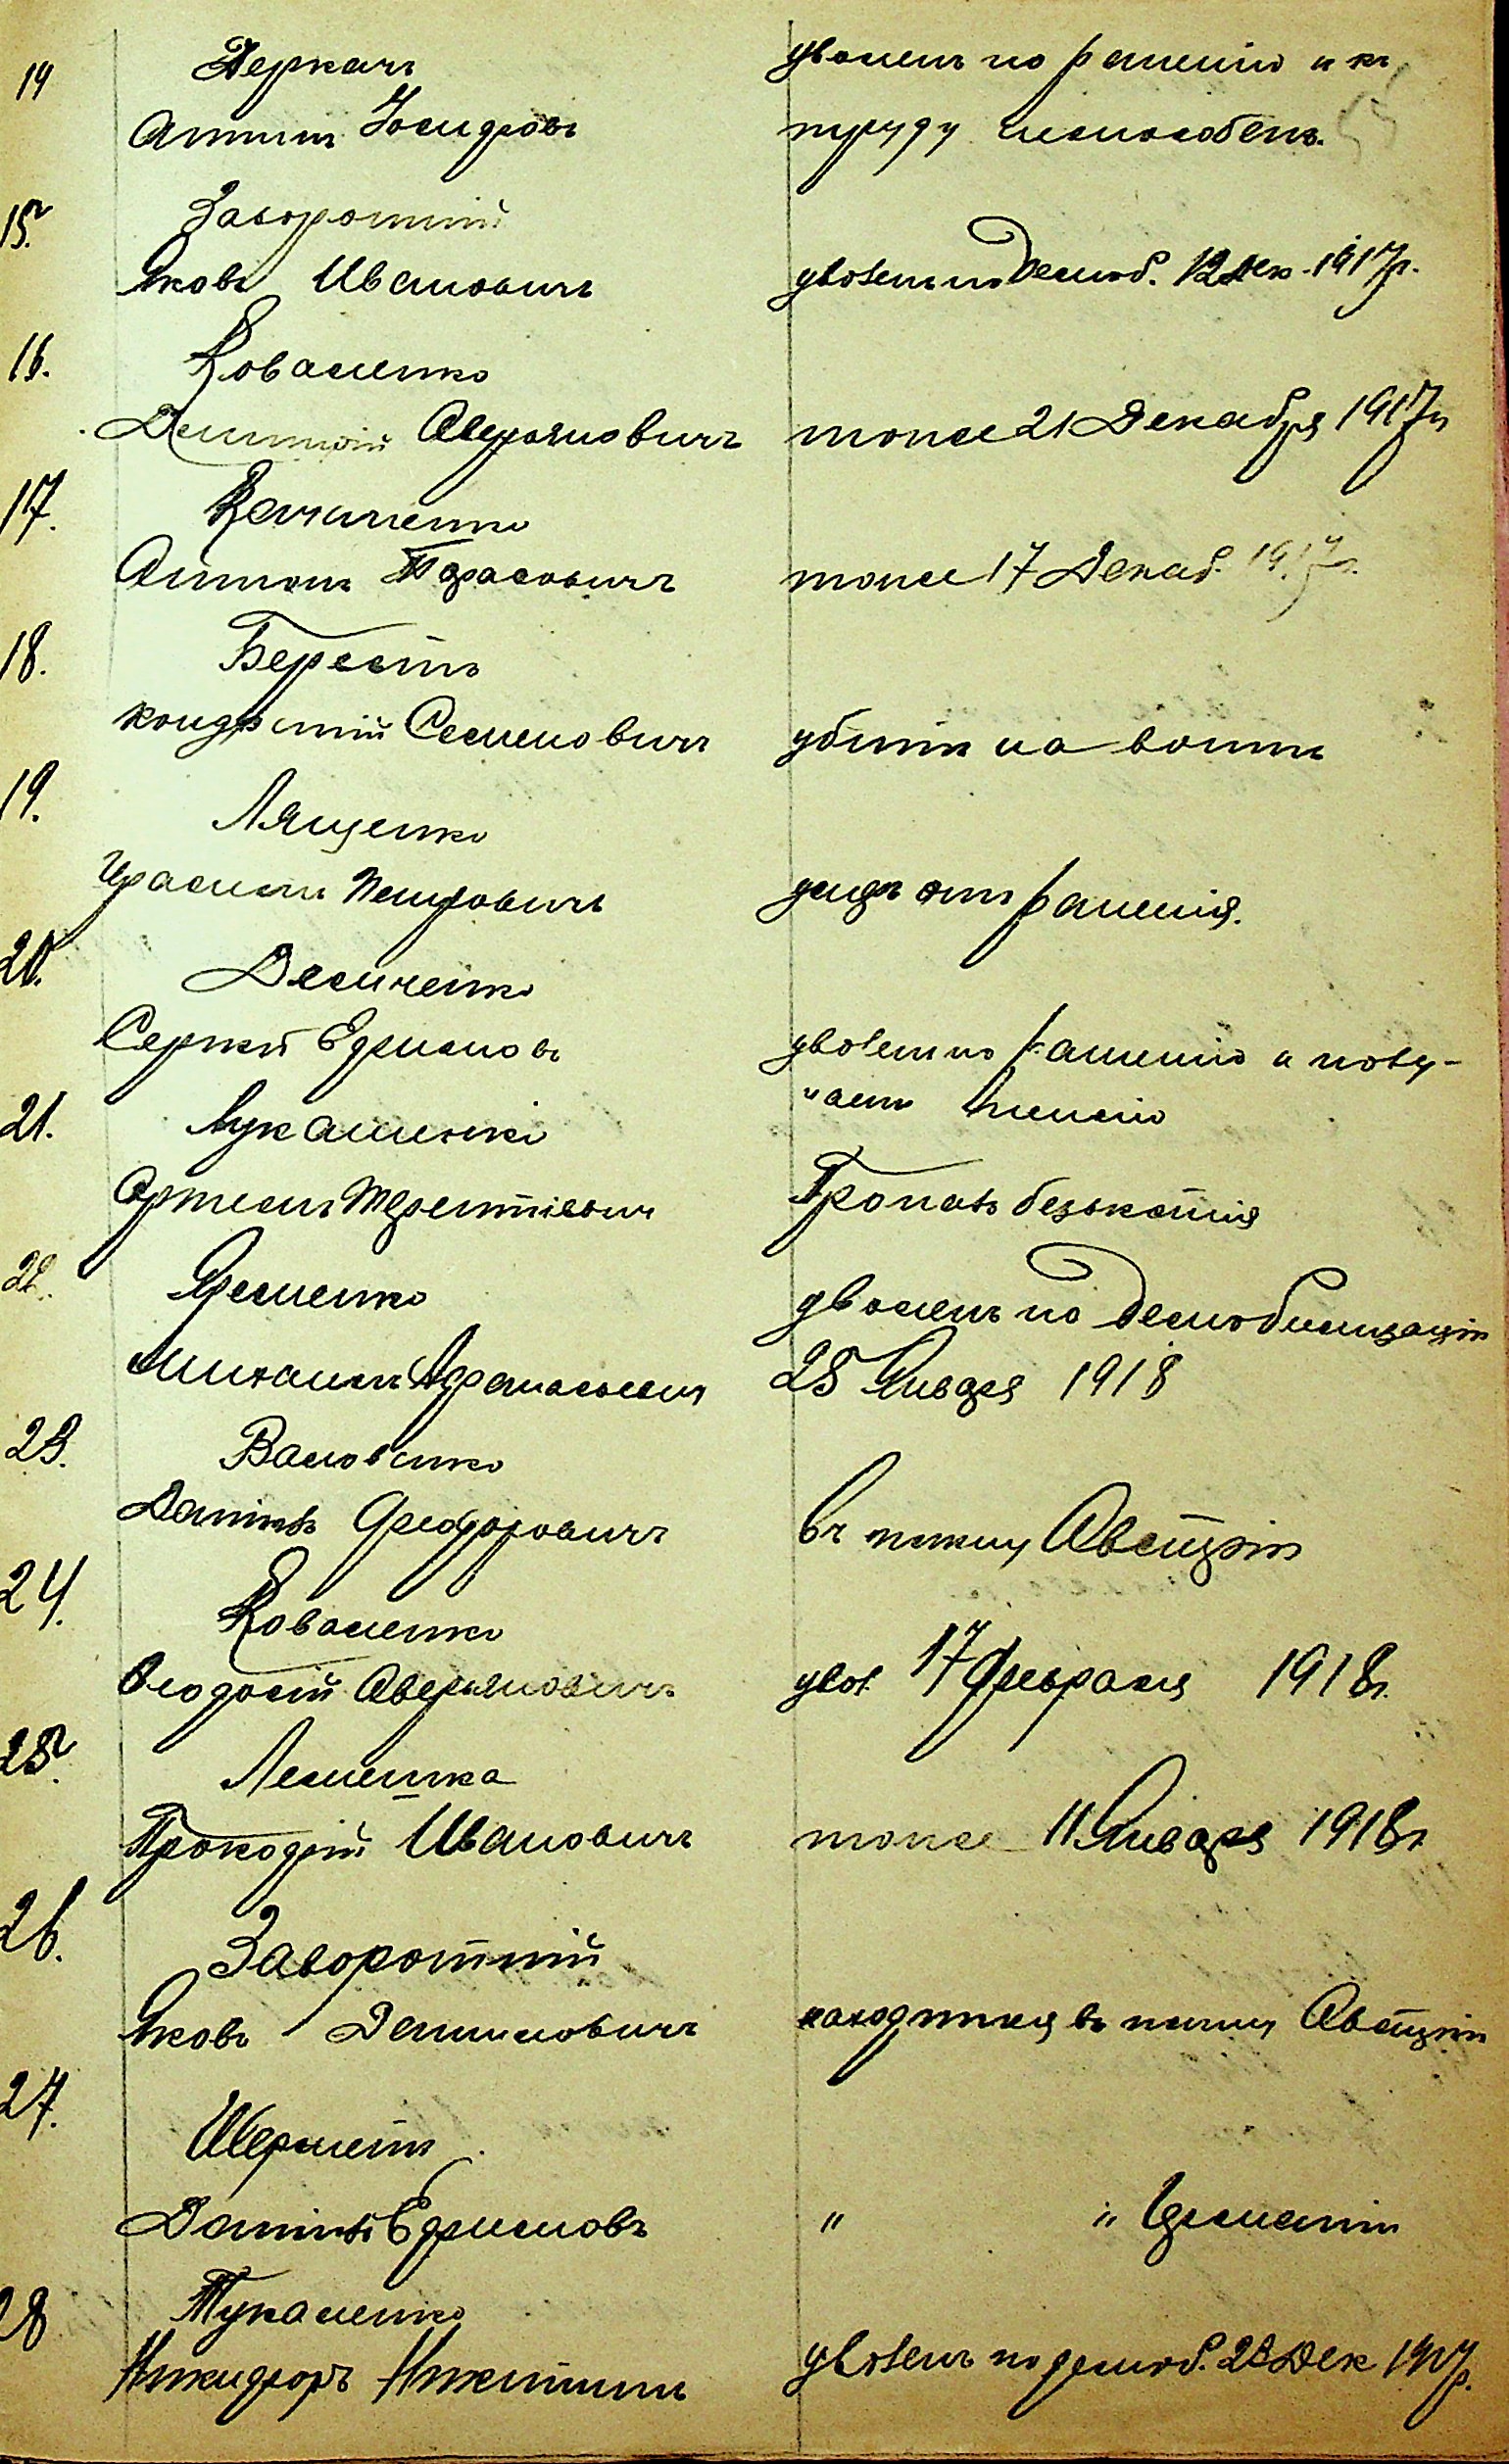 14 Деркачъ уволенъ по раненію и къ
Антинъ Іосифовъ труду неспособенъ.
15. Заворотній
Яковъ Ивановичъ уволенъ по Демоб. 12 Дек. 1917г.
16. Коваленко
Дмитрій Аверьяновичъ тоже 21 Декабря 1917г
17.
Антонъ Тарасовичъ тоже 17 Декаб. 1917г.
18. Берестъ
Кондратій Семеновичъ убитъ на войнѣ
19. Лященко
Герасимъ Петровичъ умеръ отъ раненія.
20. Демченко
Сергѣй Ефимовъ уволенъ по раненію и полу-
чаетъ пенсію
21. Лукашенко
Артемъ Терентіевичъ Пропалъ безъвѣстія
22. Яременко уволенъ по демобилизаціи
Михаилъ Афанасьевич 25 Января 1918
23.
Даніилъ Феодоровичъ въ плѣну Австріи
24. Коваленко
Феодосій Аверьяновичъ увол 17 Февраля 1918г.
25. Лемешка
Прокофій Ивановичъ тоже 11 Января 1918г
26. Заворотній
Яковъ Даниловичъ находится въ плѣну Австріи
27. Шереметъ
Даніилъ Ефимовъ " " Германіи
28 Тукаленко
Никифоръ Никитинъ уволенъ по демоб. 28 Дек 1917г.